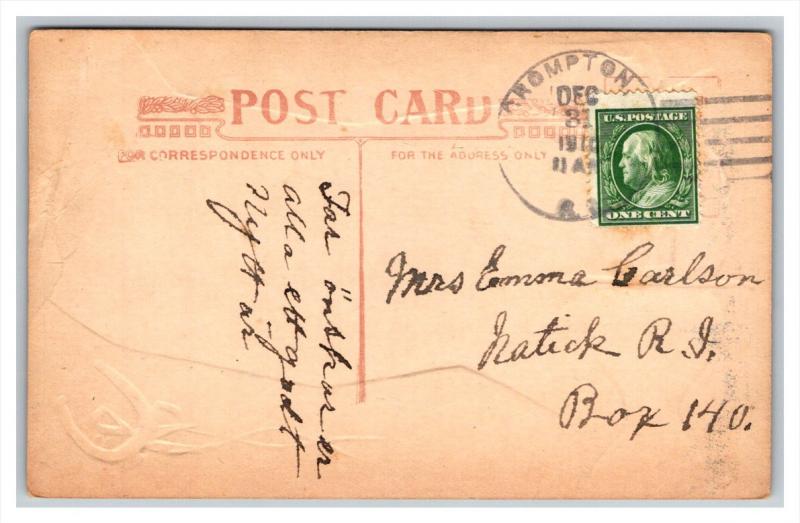 POST CARD
FOR CORRESPONDENCE ONLY
FOR THE ADDRESS ONLY
CROMPTON
DEC
31
R.I.
U.S. POSTAGE
ONE CENT
Far önskar er
alla ett godt
Nytt år
Mrs Emma Carlson
Natick R.I.
Box 140.